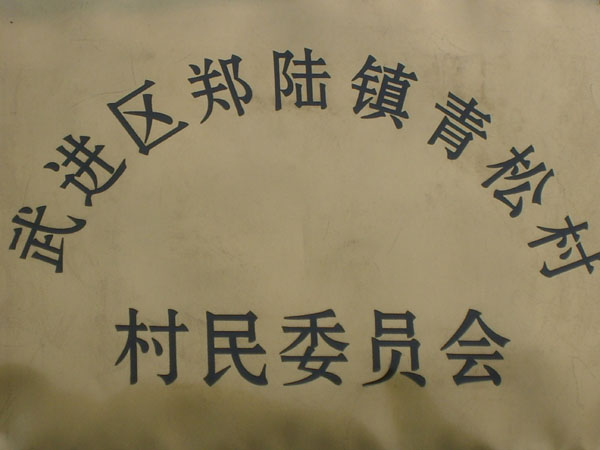 武进区郑陆镇青松村
村民委员会